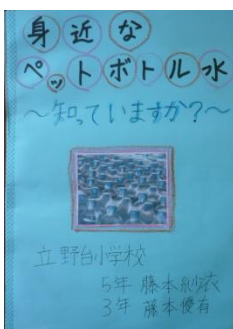 身近な
ペットボトル水
～知っていますか？～
立野台小学校
5年 藤本紗衣
3年 藤本優有